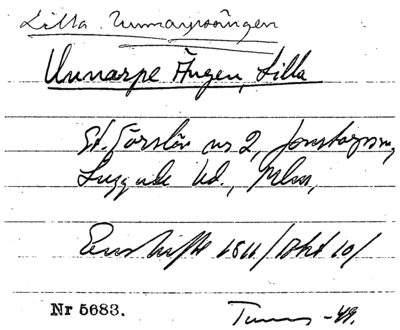 Lilla Unnarpsängen
Unnarpe Ängen, Lilla
St. Görslöv nr 2, Jonstorps sn,
Luggude hd., Mlm,
Enskifte 1811/Okt 10/
Nr 5683.
-49.